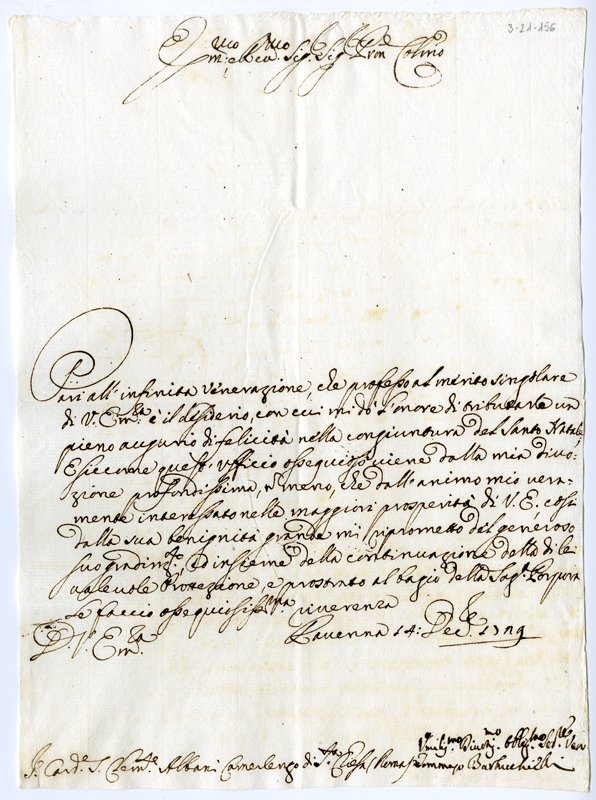 3-21-156
E.mo e Rev.mo Sig. Sig. Pron Colmo
Pari all' infinita venerazione, che professo al merito singolare
di V. Em.za è il desiderio, con cui mi dò l'onore di tributarle un
pieno augurio di felicità nella congiuntura del Santo Natale.
E siccome quest' ufficio ossequioso viene dalla mia divo-
zione profondissima, non meno, che dall' animo mio vera-
mente interessato nelle maggiori prosperità di V. E., così
dalla sua benignità grande mi riprometto del generoso
suo gradim.to, ed insieme della continuazione della di lei
valevole Protezione, e prostrato al bagio della Sag.a Porpora
Le faccio ossequiosiss.ma riverenza
D. V. Em.za
Ravenna 14: Dec.e
Umilis.mo Divotis.mo Obblig.mo Ser.re Vero
S. Card.e S. Clem.te Albani Camerlengo di S.ta Chiesa / Roma / Tommaso